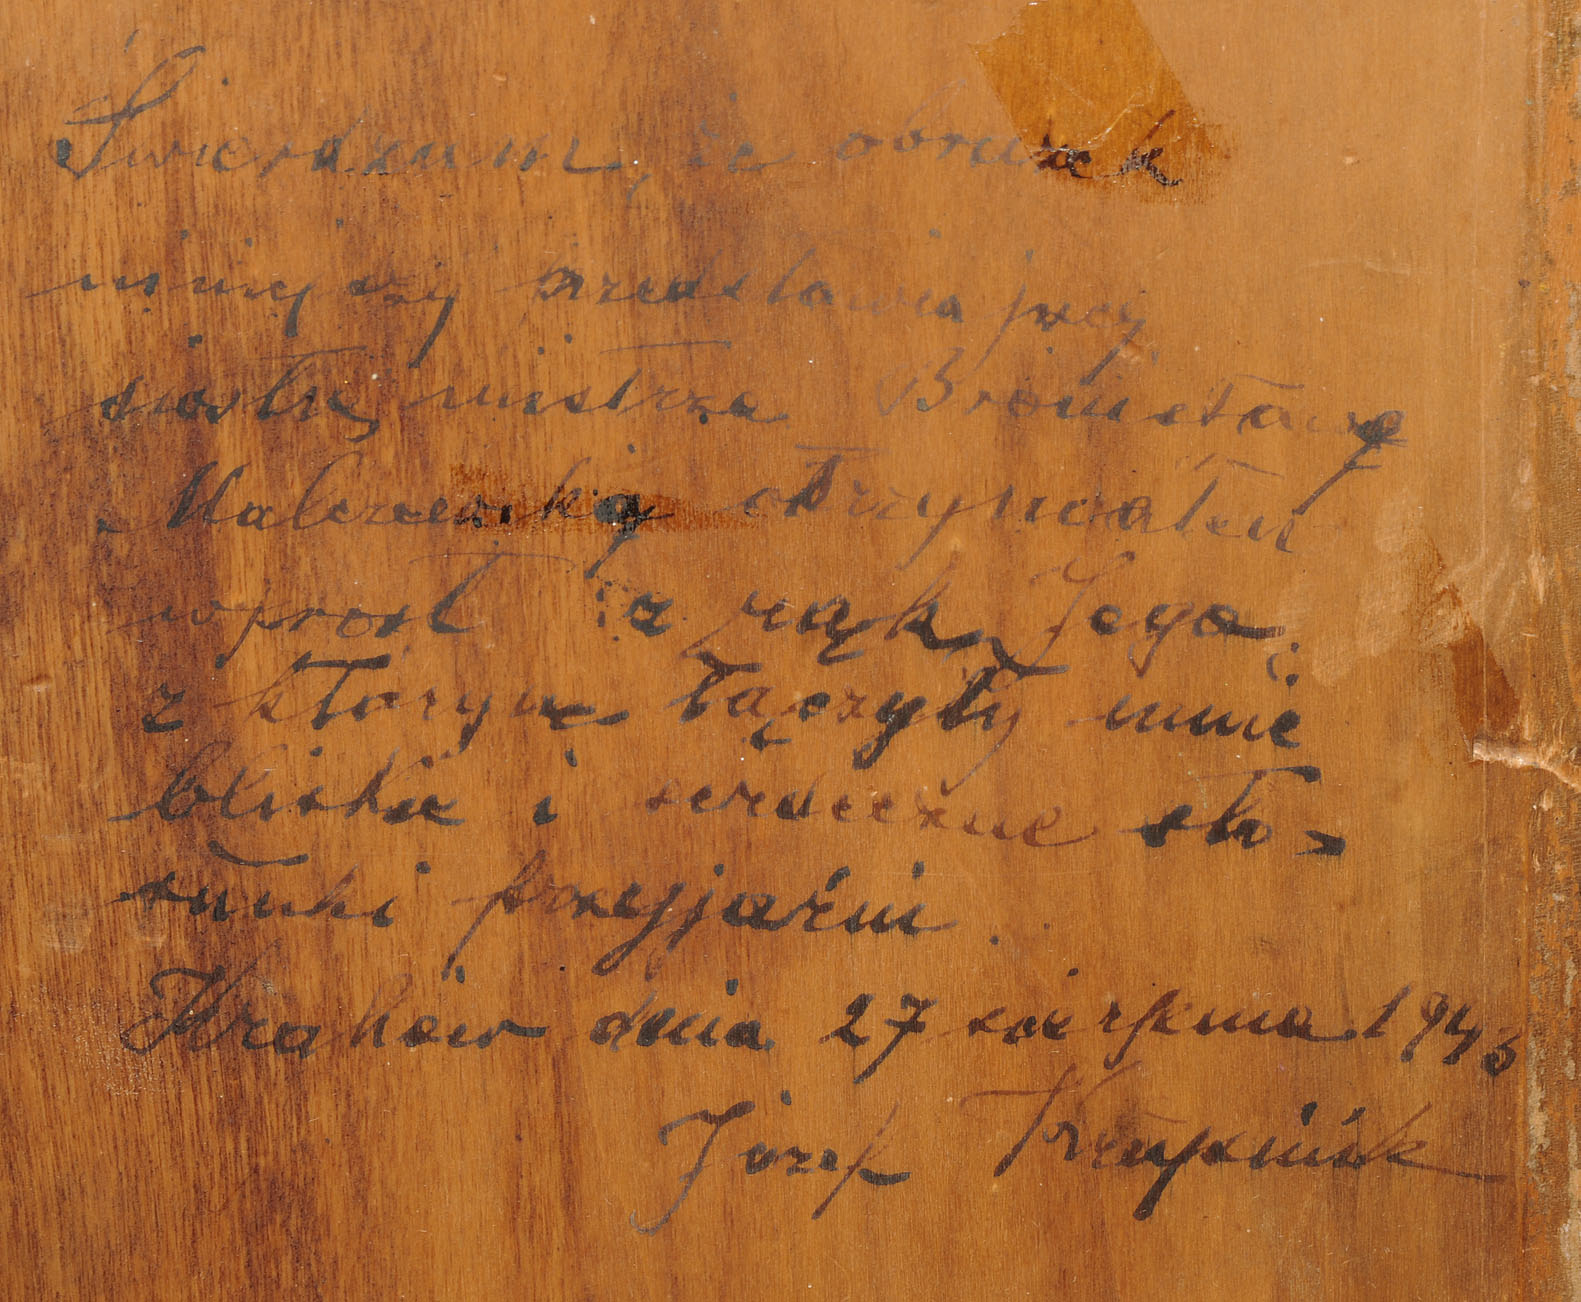 Stwierdzam, że obrazek
niniejszy przedstawiający
siostrę mistrza Bronisławę
Malczewską otrzymałem
wprost z rąk Jego,
z którym łączyły mnie
bliskie i serdeczne sto-
sunki przyjaźni.
Kraków dnia 27 sierpnia 1943
Józef Krzepinik